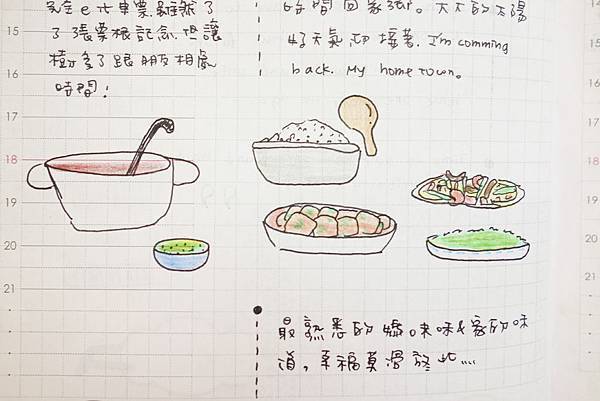 完全e化車票,雖然了
了張票根記念,也讓
樹多了跟朋友相處
時間!
時間回家鄉。大大的太陽
好天氣迎接著. I'm comming
back. My home town。
15
16
17
18
19
20
21
14
15
16
最熟悉的媽。味味&家的味
道,幸福莫過於此....